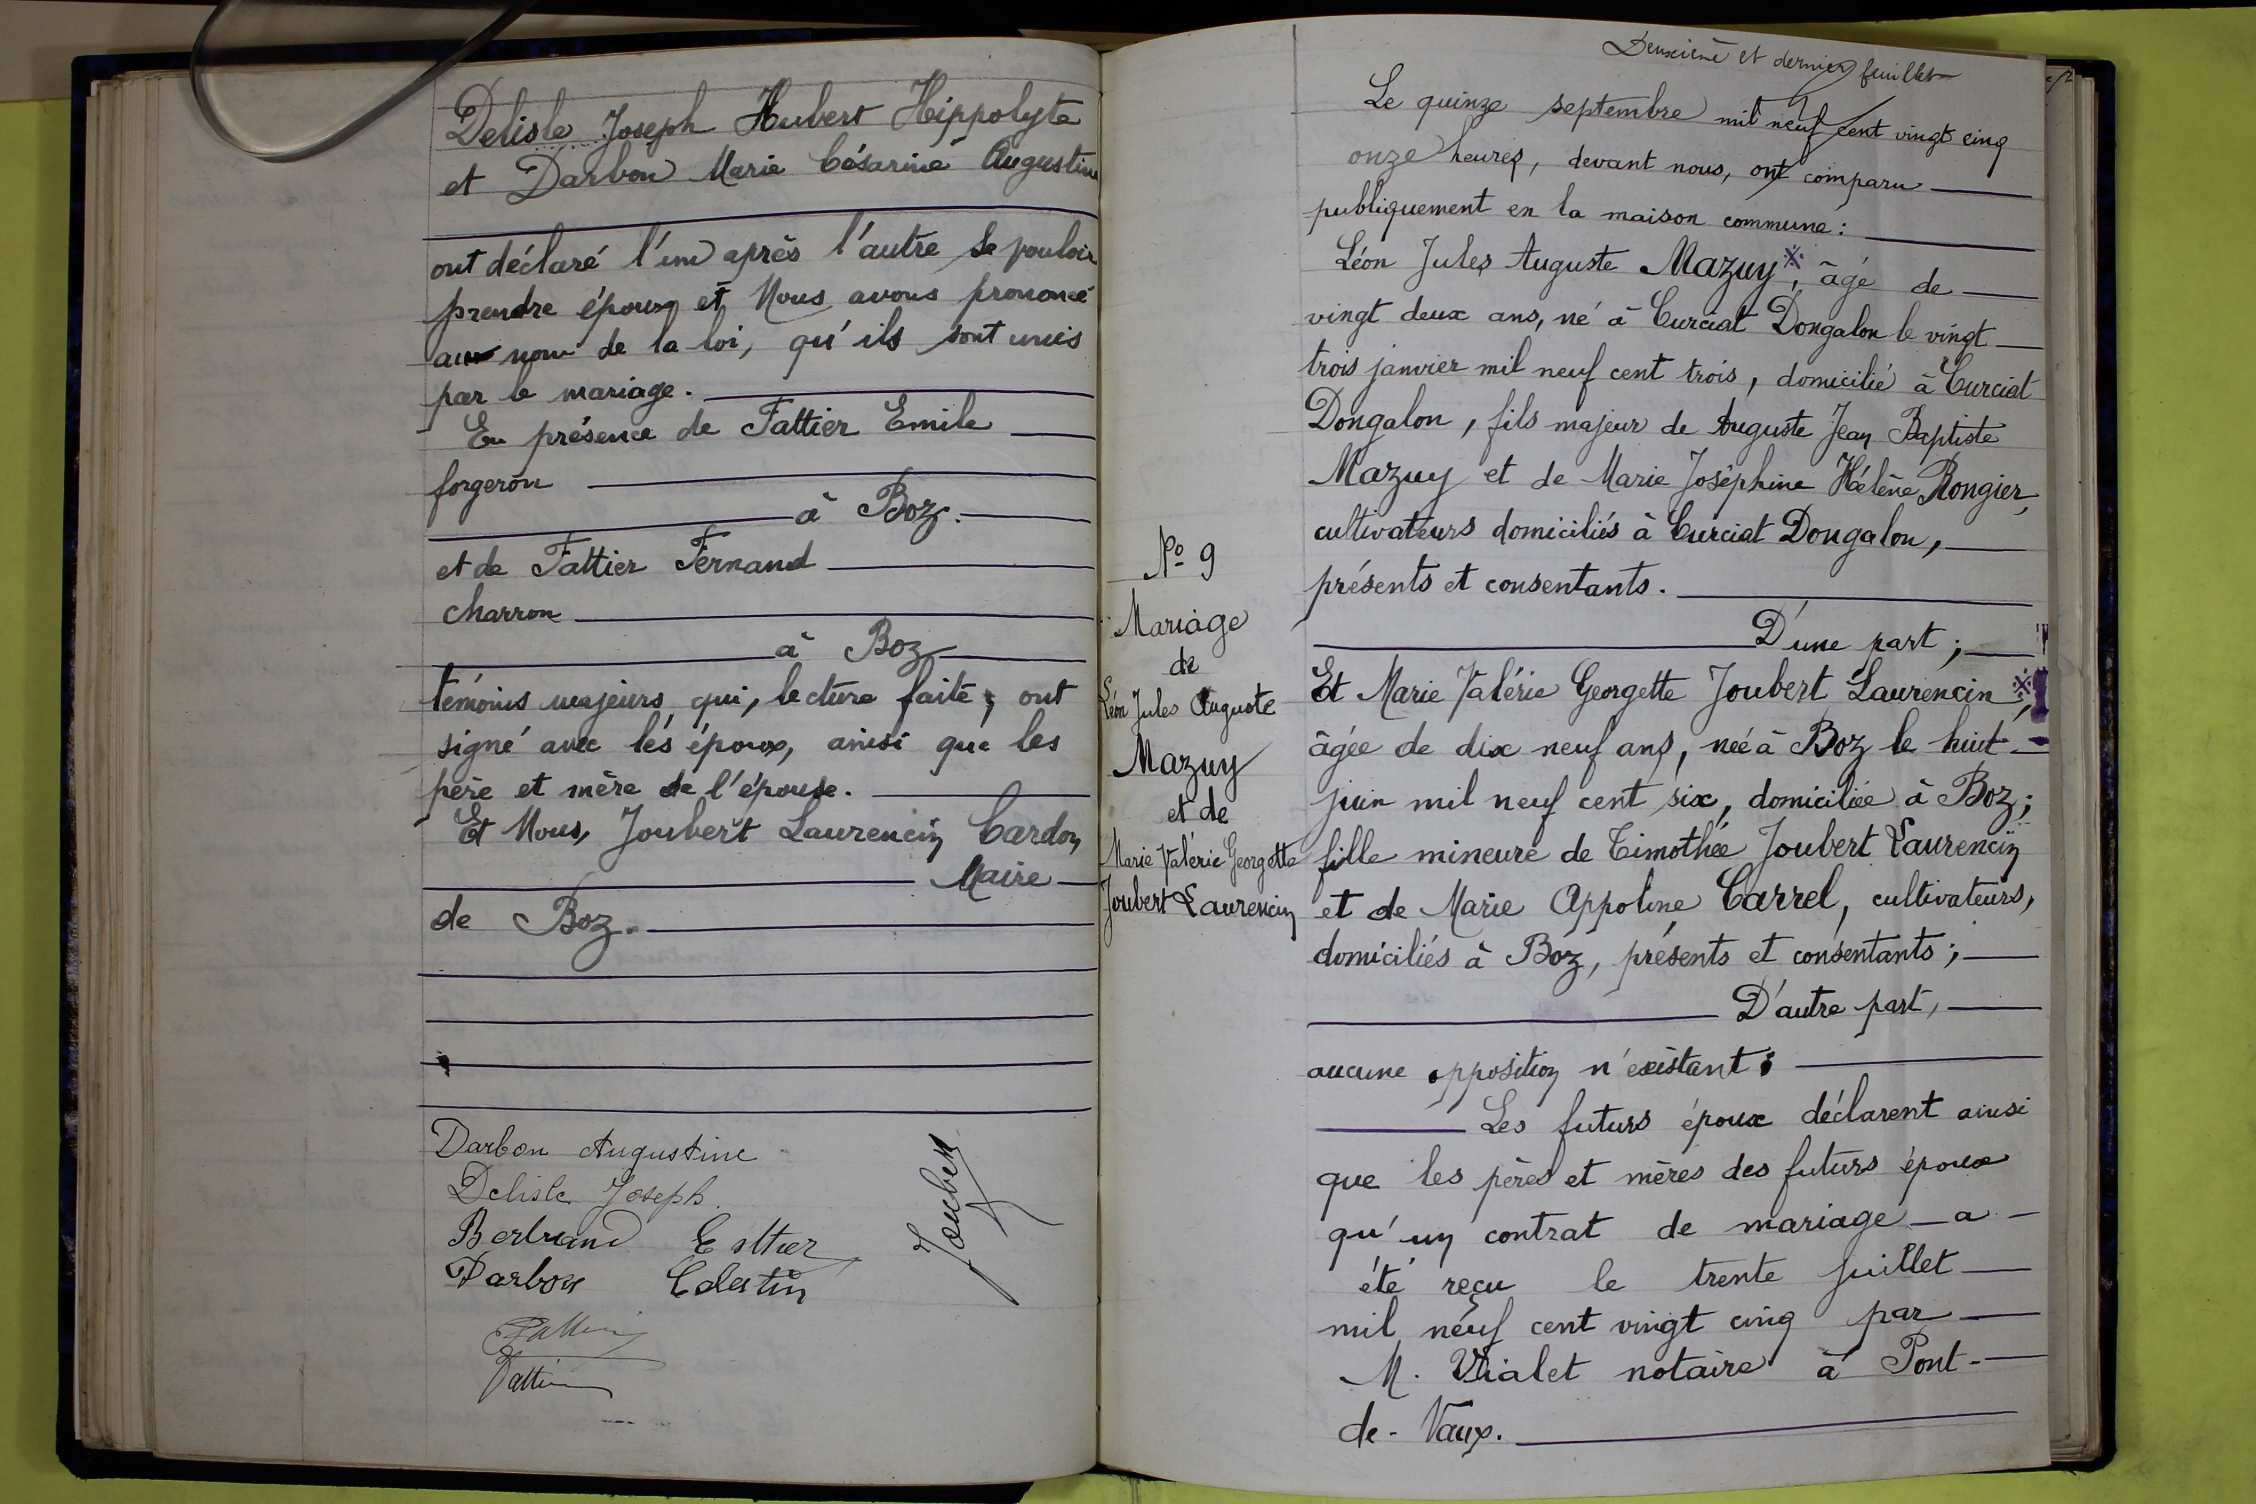 Delisle Joseph Hubert Hippolyte
et Darbon Marie Césarine Augustine
ont déclaré l'un après l'autre se vouloir
prendre époux et Nous avons prononcé
au nom de la loi, qu'ils sont unis
par le mariage.
En présence de Fattier Emile
forgeron
à Boz.
et de Fattier Fernand
charron
à Boz
témoins majeurs qui, lecture faite, ont
signé avec les époux, ainsi que les
père et mère de l'épouse.
Et Nous, Joubert Laurencin Cardon
Maire
de Boz.
Darbon Augustine
Delisle Joseph.
Bertrand Esther
Darbon Celestin
Fattier
Fattier
Joubert
Deuxième et dernier feuillet
Le quinze septembre mil neuf cent vingt cinq
onze heures, devant nous, ont comparu
publiquement en la maison commune :
Léon Jules Auguste Mazuy ※, âgé de
vingt deux ans, né à Curciat Dongalon le vingt
trois janvier mil neuf cent trois, domicilié à Curciat
Dongalon, fils majeur de Auguste Jean Baptiste
Mazuy et de Marie Joséphine Hélène Rongier,
cultivateurs domiciliés à Curciat Dongalon,
présents et consentants.
D'une part ;
Et Marie Valérie Georgette Joubert Laurencin ※,
âgée de dix neuf ans, née à Boz le huit
juin mil neuf cent six, domiciliée à Boz ;
fille mineure de Timothée Joubert Laurencin
et de Marie Appoline Carrel, cultivateurs,
domiciliés à Boz, présents et consentants ;
D'autre part,
aucune opposition n'existant ;
Les futurs époux déclarent ainsi
que les pères et mères des futurs époux
qu'un contrat de mariage a
été reçu le trente juillet
mil neuf cent vingt cinq par
M. Vialet notaire à Pont-
de-Vaux.
No 9
Mariage
de
Léon Jules Auguste
Mazuy
et de
Marie Valérie Georgette
Joubert Laurencin